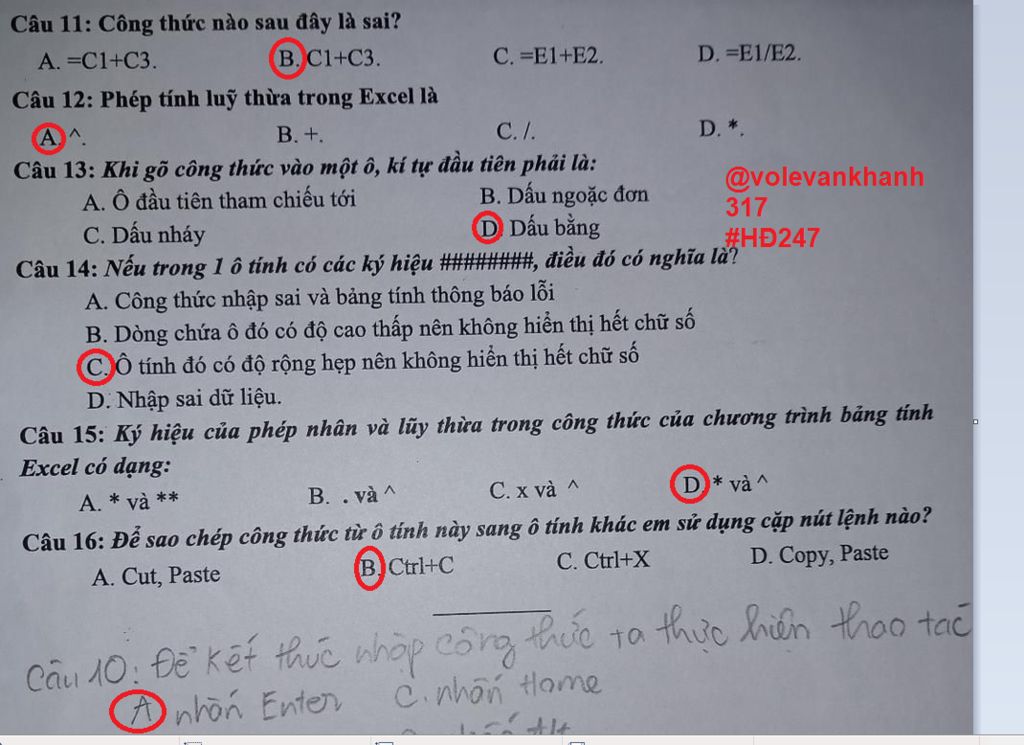 Câu 11: Công thức nào sau đây là sai?
A. =C1+C3. B. C1+C3. C. =E1+E2. D. =E1/E2.
Câu 12: Phép tính luỹ thừa trong Excel là
A. ^. B. +. C. /. D. *.
Câu 13: Khi gõ công thức vào một ô, kí tự đầu tiên phải là:
A. Ô đầu tiên tham chiếu tới B. Dấu ngoặc đơn
C. Dấu nháy D. Dấu bằng
@volevankhanh
317
#HĐ247
Câu 14: Nếu trong 1 ô tính có các ký hiệu ########, điều đó có nghĩa là?
A. Công thức nhập sai và bảng tính thông báo lỗi
B. Dòng chứa ô đó có độ cao thấp nên không hiển thị hết chữ số
C. Ô tính đó có độ rộng hẹp nên không hiển thị hết chữ số
D. Nhập sai dữ liệu.
Câu 15: Ký hiệu của phép nhân và lũy thừa trong công thức của chương trình bảng tính
Excel có dạng:
A. * và ** B. . và ^ C. x và ^ D. * và ^
Câu 16: Để sao chép công thức từ ô tính này sang ô tính khác em sử dụng cặp nút lệnh nào?
A. Cut, Paste B. Ctrl+C C. Ctrl+X D. Copy, Paste
Câu 10: Để kết thúc nhập công thức ta thực hiện thao tác
A nhấn Enter C. nhấn Home